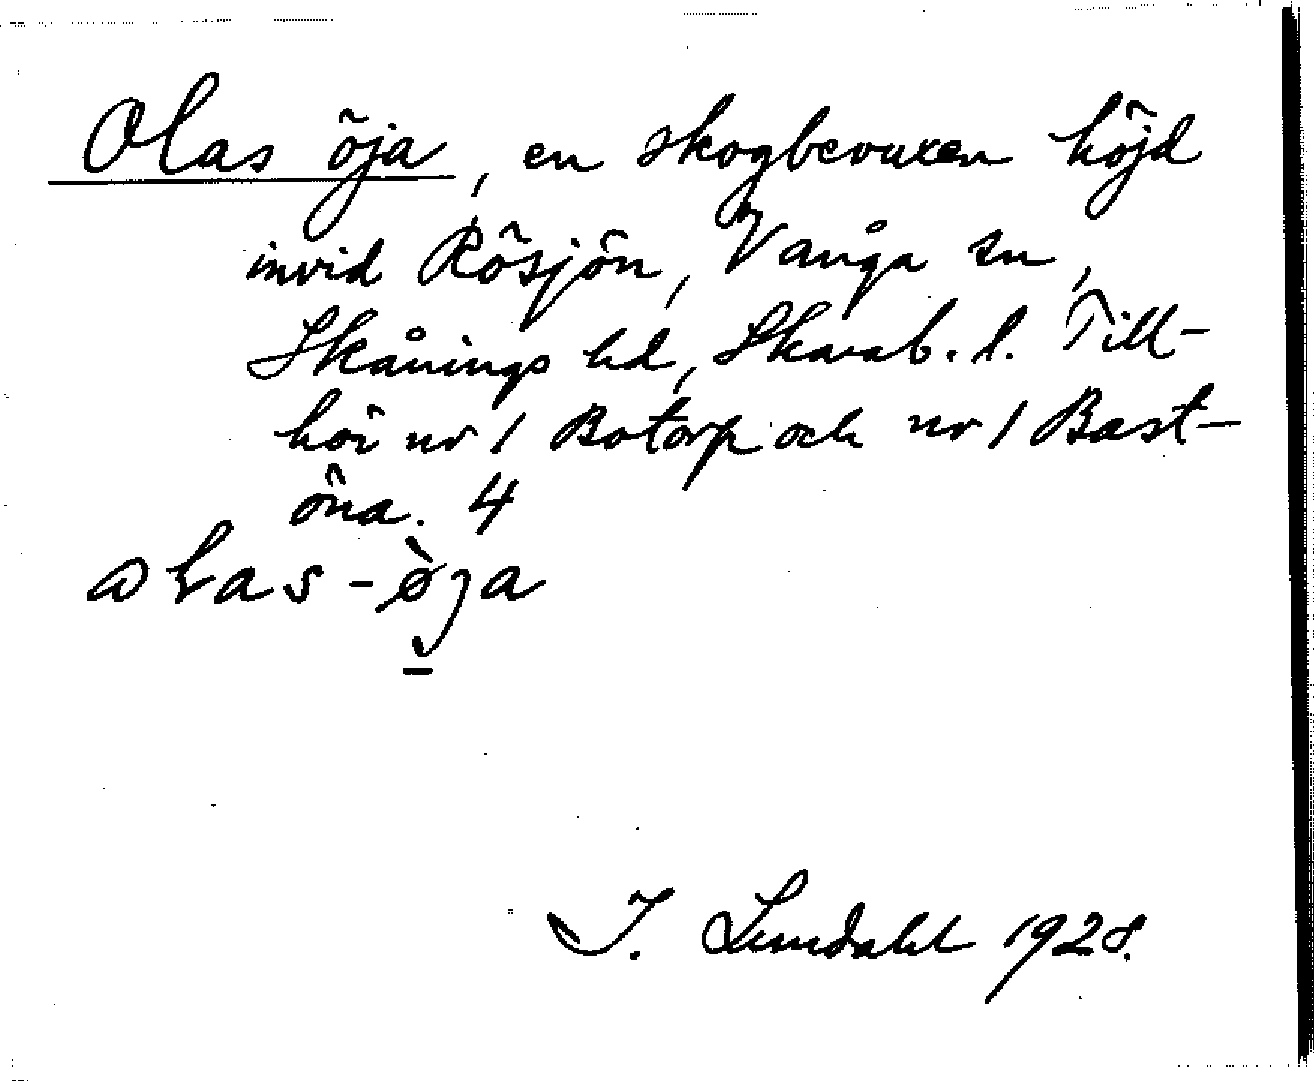 Olas öja, en skogbevuxen höjd
invid Rösjön, Vånga sn,
Skånings hd, Skarab. l. Till-
hör nr 1 Botorp och nr 1 Bast-
öna. 4
olas-øja
I. Lundahl 1928.